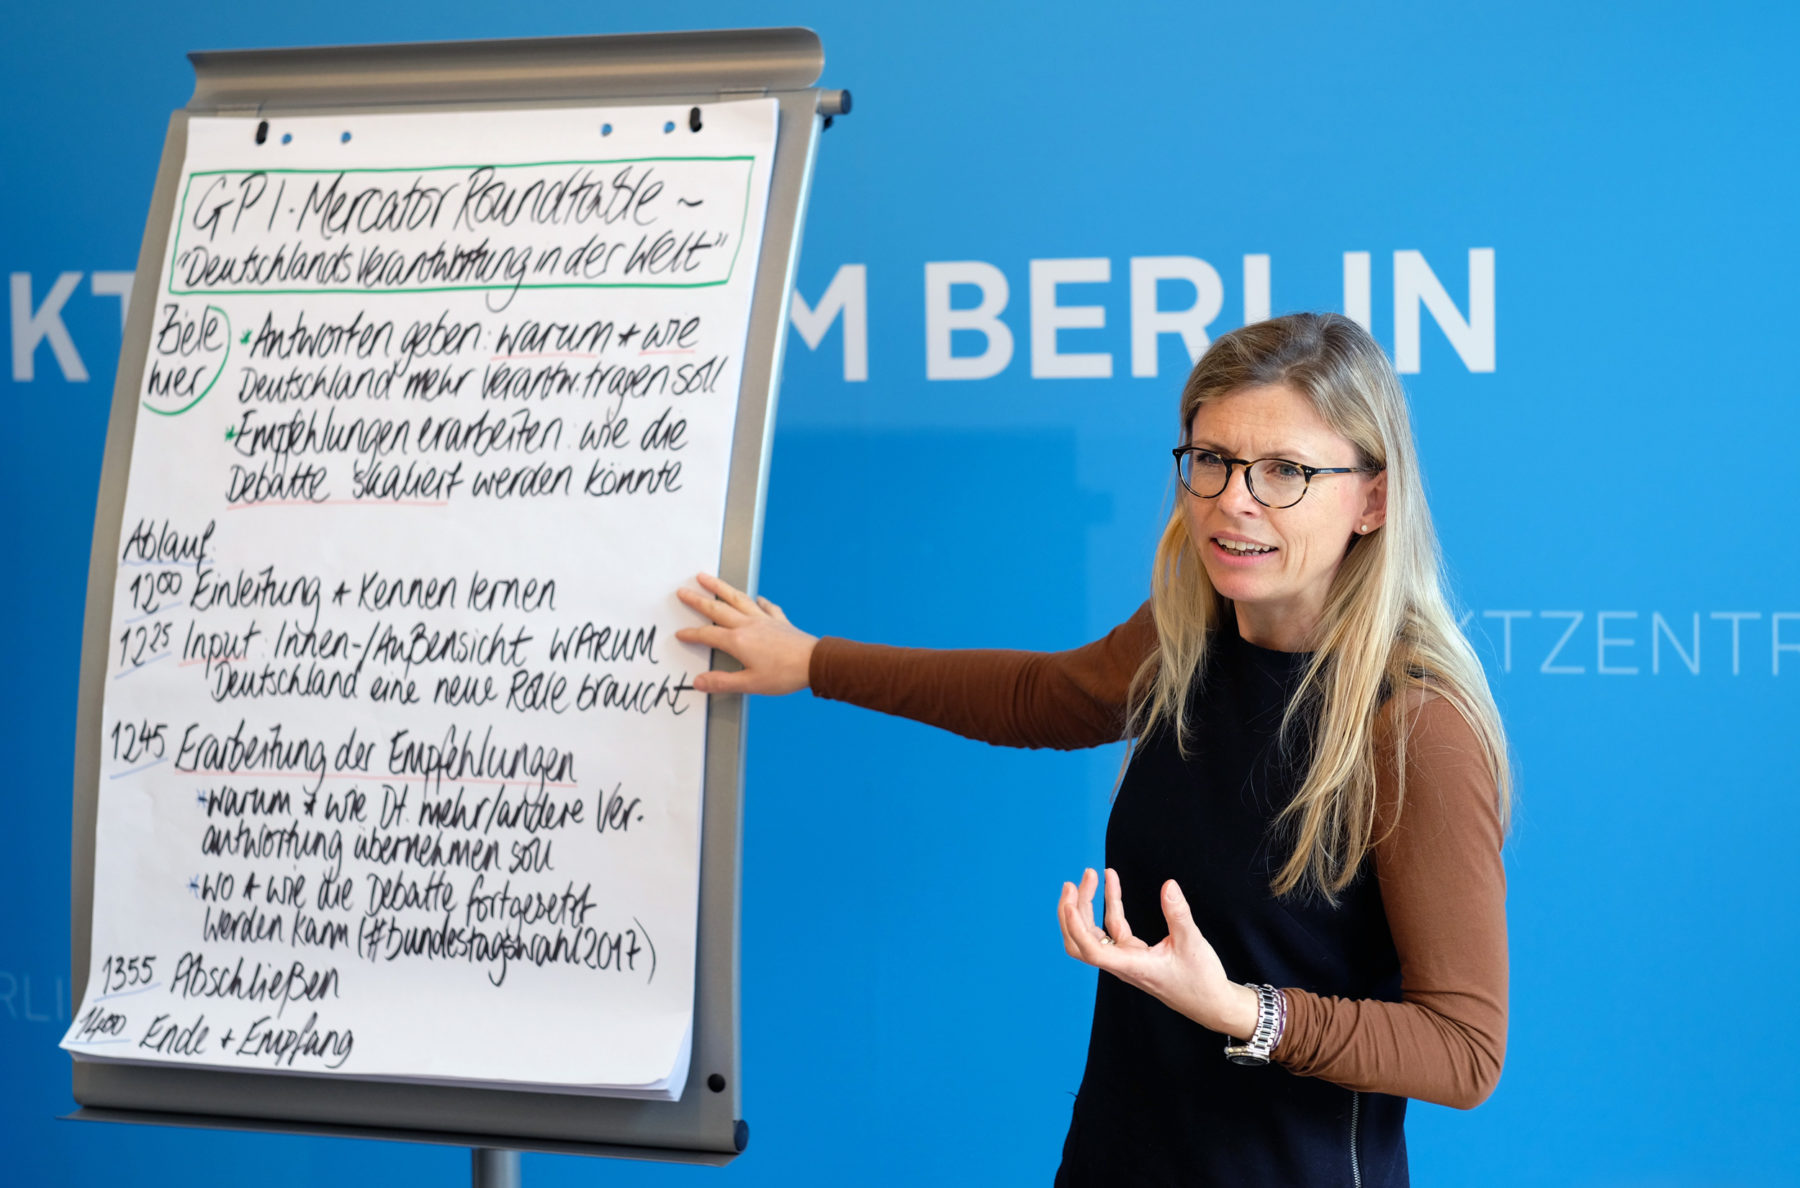 GPI·Mercator Roundtable ~
"Deutschlands Verantwortung in der Welt"
Ziele
hier
*Antworten geben: warum + wie
Deutschland mehr Verantw. tragen soll
*Empfehlungen erarbeiten: wie die
Debatte skaliert werden könnte
Ablauf:
12 00 Einleitung + Kennen lernen
12 25 Input: Innen-/Außensicht WARUM
Deutschland eine neue Rolle braucht
12 45 Erarbeitung der Empfehlungen
*warum + wie Dt. mehr/andere Ver-
antwortung übernehmen soll
*wo + wie die Debatte fortgesetzt
werden kann (#bundestagswahl2017)
13 55 Abschließen
14 00 Ende + Empfang
KT
M BERLIN
KTZENTR
RLI